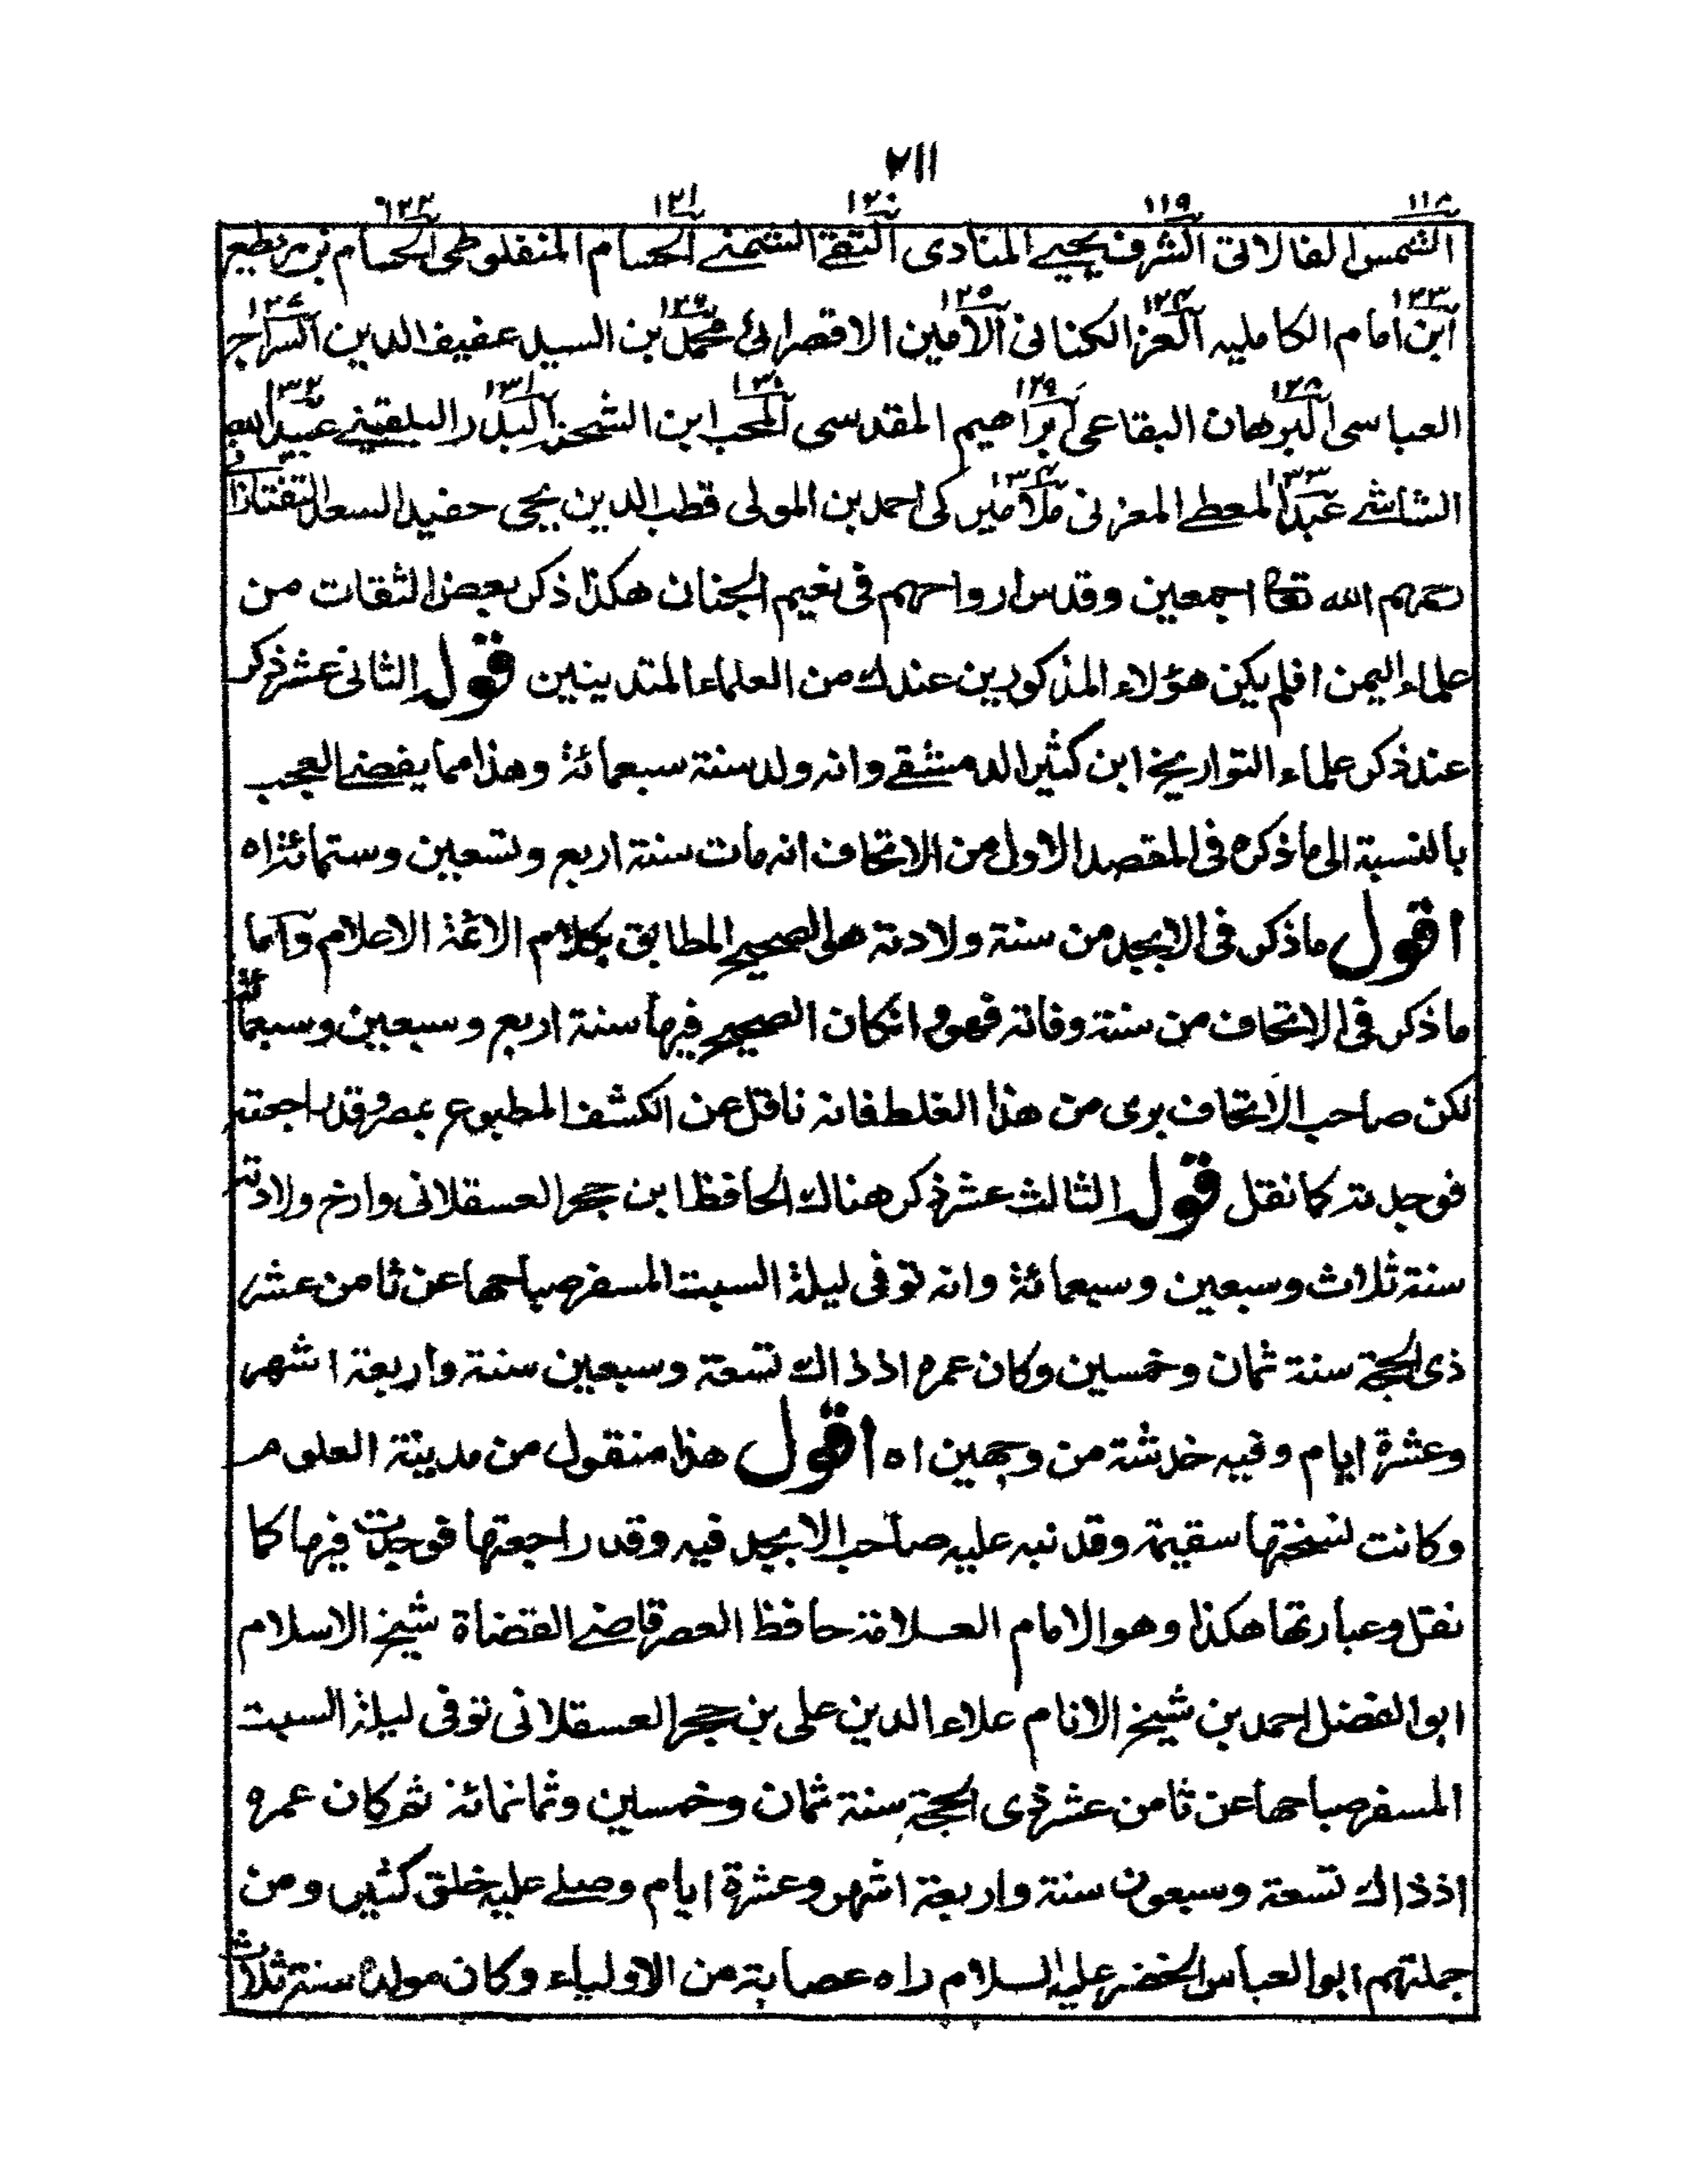 ٢١١
١١٨ ١١٩ ١٢٠ ١٢١ ١٢٢
الشمس الفالاتى الشرف يحيى المنادى التقى الشمنى الحسام المنفلوطى الحسام بن مربطعير
١٢٣ ١٢٤ ١٢٥ ١٢٦ ١٢٧
ابن امام الكامليه العز الكنانى الامين الاقصرائى محمد بن السيد عفيف الدين السراج
١٢٨ ١٢٩ ١٣٠ ١٣١ ١٣٢
العباسى البرهان البقاعى ابراهيم المقدسى المحب ابن الشحنه البدر البلقينى عبيد الله
١٣٣ ١٣٤
الشاشى عبد المعطى المغربى ملا مير كى احمد بن المولى قطب الدين يحى حفيد السعد التفتازانى
رحمهم الله تعالى اجمعين وقدس ارواحهم فى نعيم الجنان هكذا ذكر بعض الثقات من
علماء اليمن افلم يكن هؤلاء المذكورين عندك من العلماء المتدينين قوله الثانى عشر ذكر
عند ذكر علماء التواريخ ابن كثير الدمشقى وانه ولد سنة سبعمائة وهذا مما يفضى العجب
بالنسبة الى ما ذكره فى المقصد الاول من الاتحاف انه مات سنة اربع وتسعين وستمائة اه
اقول ما ذكر فى الابجد من سنة ولادته هو الصحيح المطابق بكلام الائمة الاعلام واما
ما ذكر فى الاتحاف من سنة وفاته فهو وانكان الصحيح فيها سنة اربع وسبعين وسبعمائة
لكن صاحب الاتحاف برى من هذا الغلط فانه ناقل عن الكشف المطبوع بمصر وقد راجعته
فوجدته كما نقل قوله الثالث عشر ذكر هناك الحافظ ابن حجر العسقلانى وارخ ولادته
سنة ثلاث وسبعين وسبعمائة وانه توفى ليلة السبت المسفر صباحها عن ثامن عشر
ذى الحجة سنة ثمان وخمسين وكان عمره اذ ذاك تسعة وسبعين سنة واربعة اشهر
وعشرة ايام وفيه خدشة من وجهين اه اقول هذا منقول من مدينة العلوم
وكانت نسختها سقيمة وقد نبه عليه صاحب الابجد فيه وقد راجعتها فوجدت فيها كما
نقل وعبارتها هكذا وهو الامام العلامة حافظ العصر قاضى القضاة شيخ الاسلام
ابو الفضل احمد بن شيخ الانام علاء الدين على بن حجر العسقلانى توفى ليلة السبت
المسفر صباحها عن ثامن عشر ذى الحجة سنة ثمان وخمسين وثمانمائة ثم كان عمره
اذ ذاك تسعة وسبعون سنة واربعة اشهر وعشرة ايام وصلى عليه خلق كثير ومن
جملتهم ابو العباس الخضر عليه السلام راه عصابة من الاولياء وكان مولده سنة ثلاث